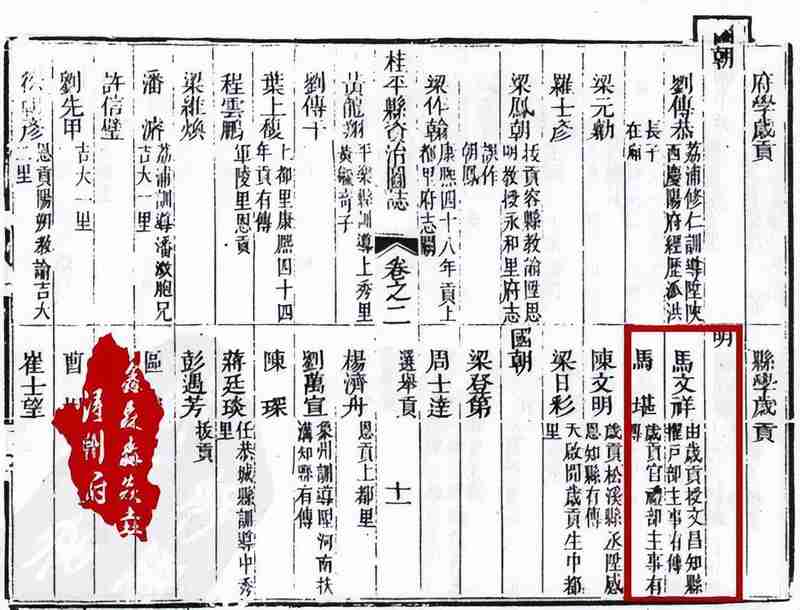 國朝
府學歲貢
劉傳恭
荔浦修仁訓導陞陝
西慶陽府經歷派洪
長子
在廂
梁元勳
羅士彥
梁鳳朝
拔貢容縣教諭陞思
明教授永和里府志
誤作
朝鳳
梁作翰
康熙四十八年貢上
都里府志闕
桂平縣資治圖志
卷之二
選舉貢
十一
黃龍翔
平樂縣訓導上秀里
黃毓奇子
劉傳
葉上馥
上都里康熙四十四
年貢有傳
程雲鵬
軍陵里恩貢
梁維煥
潘濬
荔浦訓導潘 胞兄
吉大一里
許信璧
劉先甲
吉大一里
彥
恩貢陽朔教諭吉大
二里
縣學歲貢
明
馬文祥
由歲貢授文昌知縣
擢戶部主事有傳
馬堪
歲貢官禮部主事有
傳
陳文明
歲貢松溪縣丞陞感
恩知縣有傳
梁日彩
天啟間歲貢生中都
里
國朝
梁登第
周士達
楊濟舟
恩貢上都里
劉萬宣
象州訓導陞河南扶
溝知縣有傳
陳琛
蔣廷琰
任恭城縣訓導中秀
里
彭遇芳
拔貢
區
崔士望
鑫森淼焱垚
潯州府